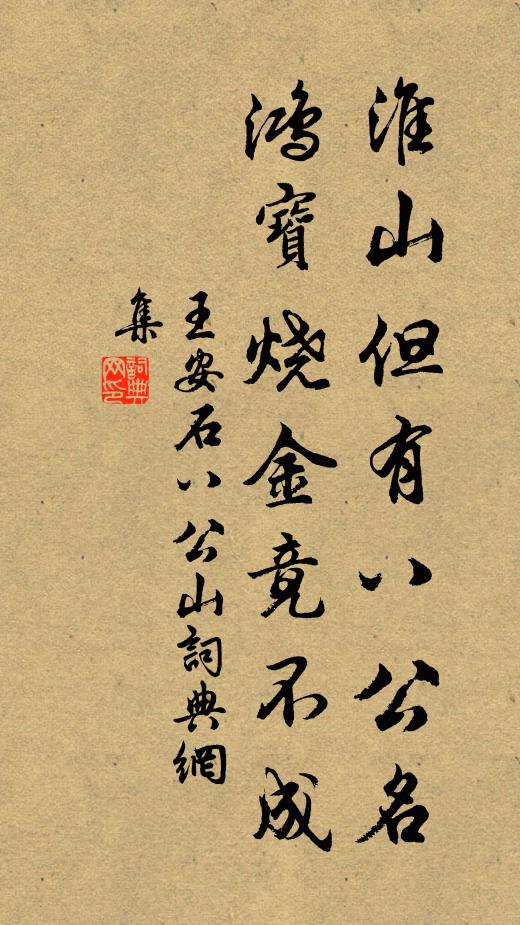 淮山但有八公名
鴻寶烧金竟不成
王安石八公山詞典網
集
詞典网印